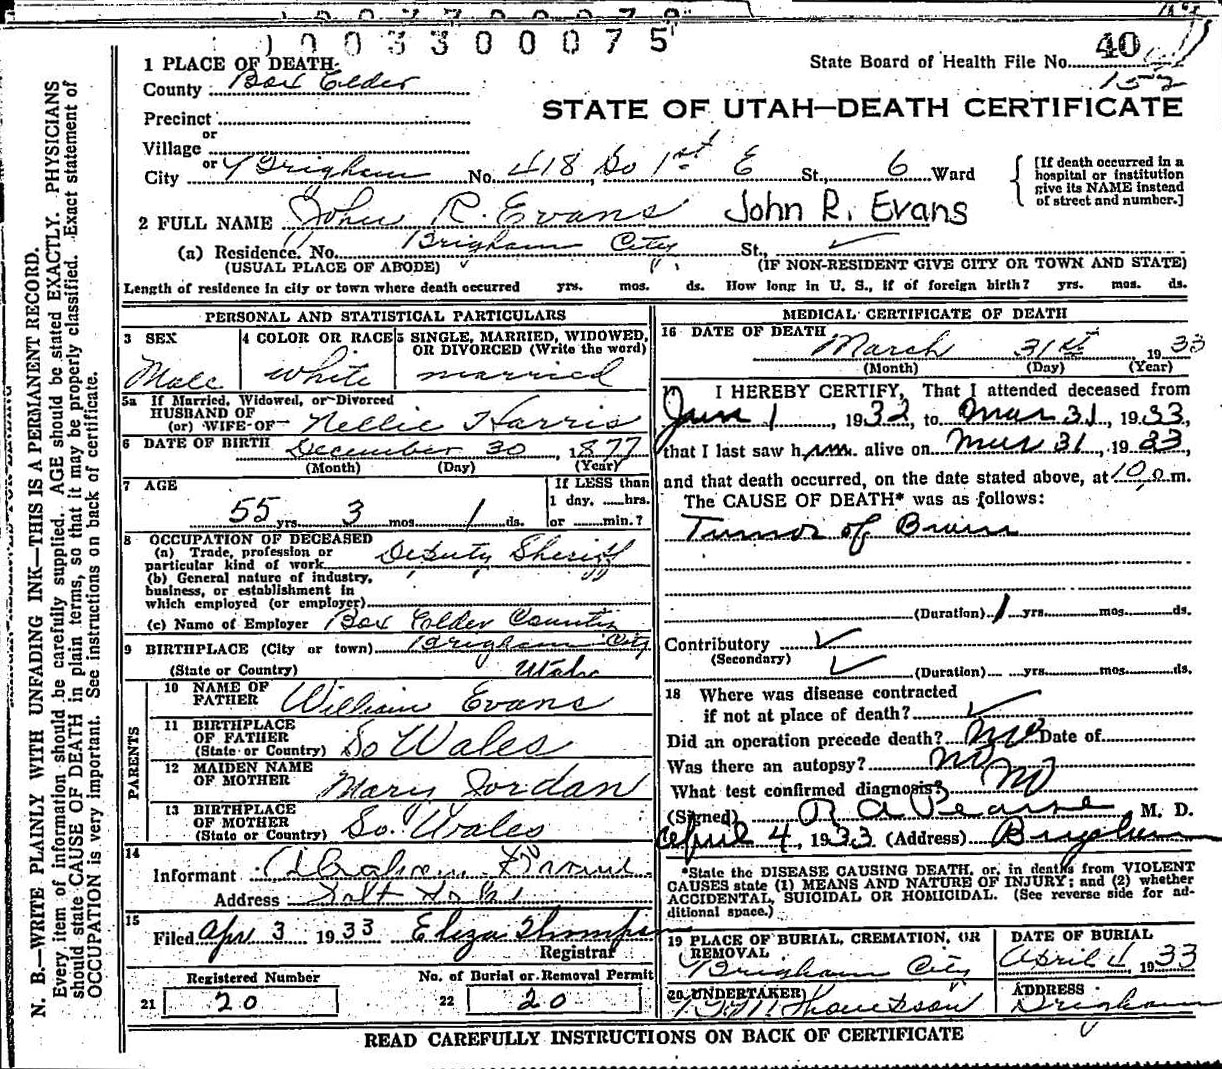 1 0 0 3 3 0 0 0 7 5
State Board of Health File No. 40
152
STATE OF UTAH—DEATH CERTIFICATE
1 PLACE OF DEATH
County Box Elder
Precinct
or
Village
or
City Brigham No. 418 So 1st E St., 6 Ward
[If death occurred in a
hospital or institution
give its NAME instead
of street and number.]
2 FULL NAME John R. Evans John R. Evans
(a) Residence. No. Brigham City St.,
(USUAL PLACE OF ABODE) (IF NON-RESIDENT GIVE CITY OR TOWN AND STATE)
Length of residence in city or town where death occurred yrs. mos. ds. How long in U. S., if of foreign birth? yrs. mos. ds.
PERSONAL AND STATISTICAL PARTICULARS
3 SEX
Male
4 COLOR OR RACE
White
5 SINGLE, MARRIED, WIDOWED,
OR DIVORCED (Write the word)
married
5a If Married, Widowed, or Divorced
HUSBAND OF
(or) WIFE OF Nellie Harris
6 DATE OF BIRTH December 30, 1877
(Month) (Day) (Year)
7 AGE
55 yrs. 3 mos. 1 ds.
If LESS than
1 day, ......hrs.
or ......min.?
8 OCCUPATION OF DECEASED
(a) Trade, profession or
particular kind of work Deputy Sheriff
(b) General nature of industry,
business, or establishment in
which employed (or employer)
(c) Name of Employer Box Elder County
9 BIRTHPLACE (City or town) Brigham City
(State or Country) Utah
PARENTS
10 NAME OF
FATHER William Evans
11 BIRTHPLACE
OF FATHER
(State or Country) So Wales
12 MAIDEN NAME
OF MOTHER Mary Jordan
13 BIRTHPLACE
OF MOTHER
(State or Country) So. Wales
14
Informant
Address Salt
15
Filed Apr 3 1933 Eliza Thompson
Registrar
Registered Number
21 20
No. of Burial or Removal Permit
22 20
MEDICAL CERTIFICATE OF DEATH
16 DATE OF DEATH
March 31st 1933
(Month) (Day) (Year)
17 I HEREBY CERTIFY, That I attended deceased from
Jan 1, 1932, to Mar 31, 1933,
that I last saw him alive on Mar 31, 1933,
and that death occurred, on the date stated above, at 10 p.m.
The CAUSE OF DEATH* was as follows:
Tumor of Brain
(Duration) 1 yrs. mos. ds.
Contributory
(Secondary)
(Duration) yrs. mos. ds.
18 Where was disease contracted
if not at place of death?
Did an operation precede death? no Date of
Was there an autopsy? no
What test confirmed diagnosis? no
(Signed) R A Pearse M. D.
April 4, 1933 (Address) Brigham
*State the DISEASE CAUSING DEATH, or, in deaths from VIOLENT
CAUSES state (1) MEANS AND NATURE OF INJURY; and (2) whether
ACCIDENTAL, SUICIDAL OR HOMICIDAL. (See reverse side for ad-
ditional space.)
19 PLACE OF BURIAL, CREMATION, OR
REMOVAL
Brigham City
DATE OF BURIAL
April 4, 1933
20 UNDERTAKER
ADDRESS
Brigham
READ CAREFULLY INSTRUCTIONS ON BACK OF CERTIFICATE
N. B.—WRITE PLAINLY WITH UNFADING INK—THIS IS A PERMANENT RECORD.
Every item of information should be carefully supplied. AGE should be stated EXACTLY. PHYSICIANS
should state CAUSE OF DEATH in plain terms, so that it may be properly classified. Exact statement of
OCCUPATION is very important. See instructions on back of certificate.